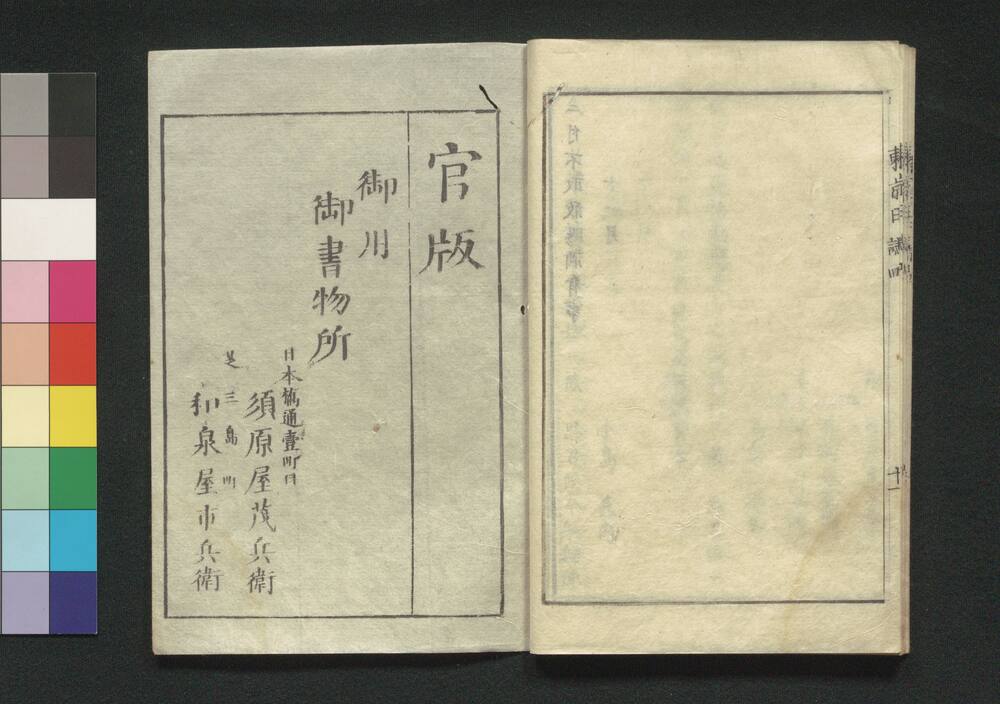 官版
御用
御書物所
日本橋通壹町目
須原屋茂兵衛
芝三島町
和泉屋市兵衛
十一